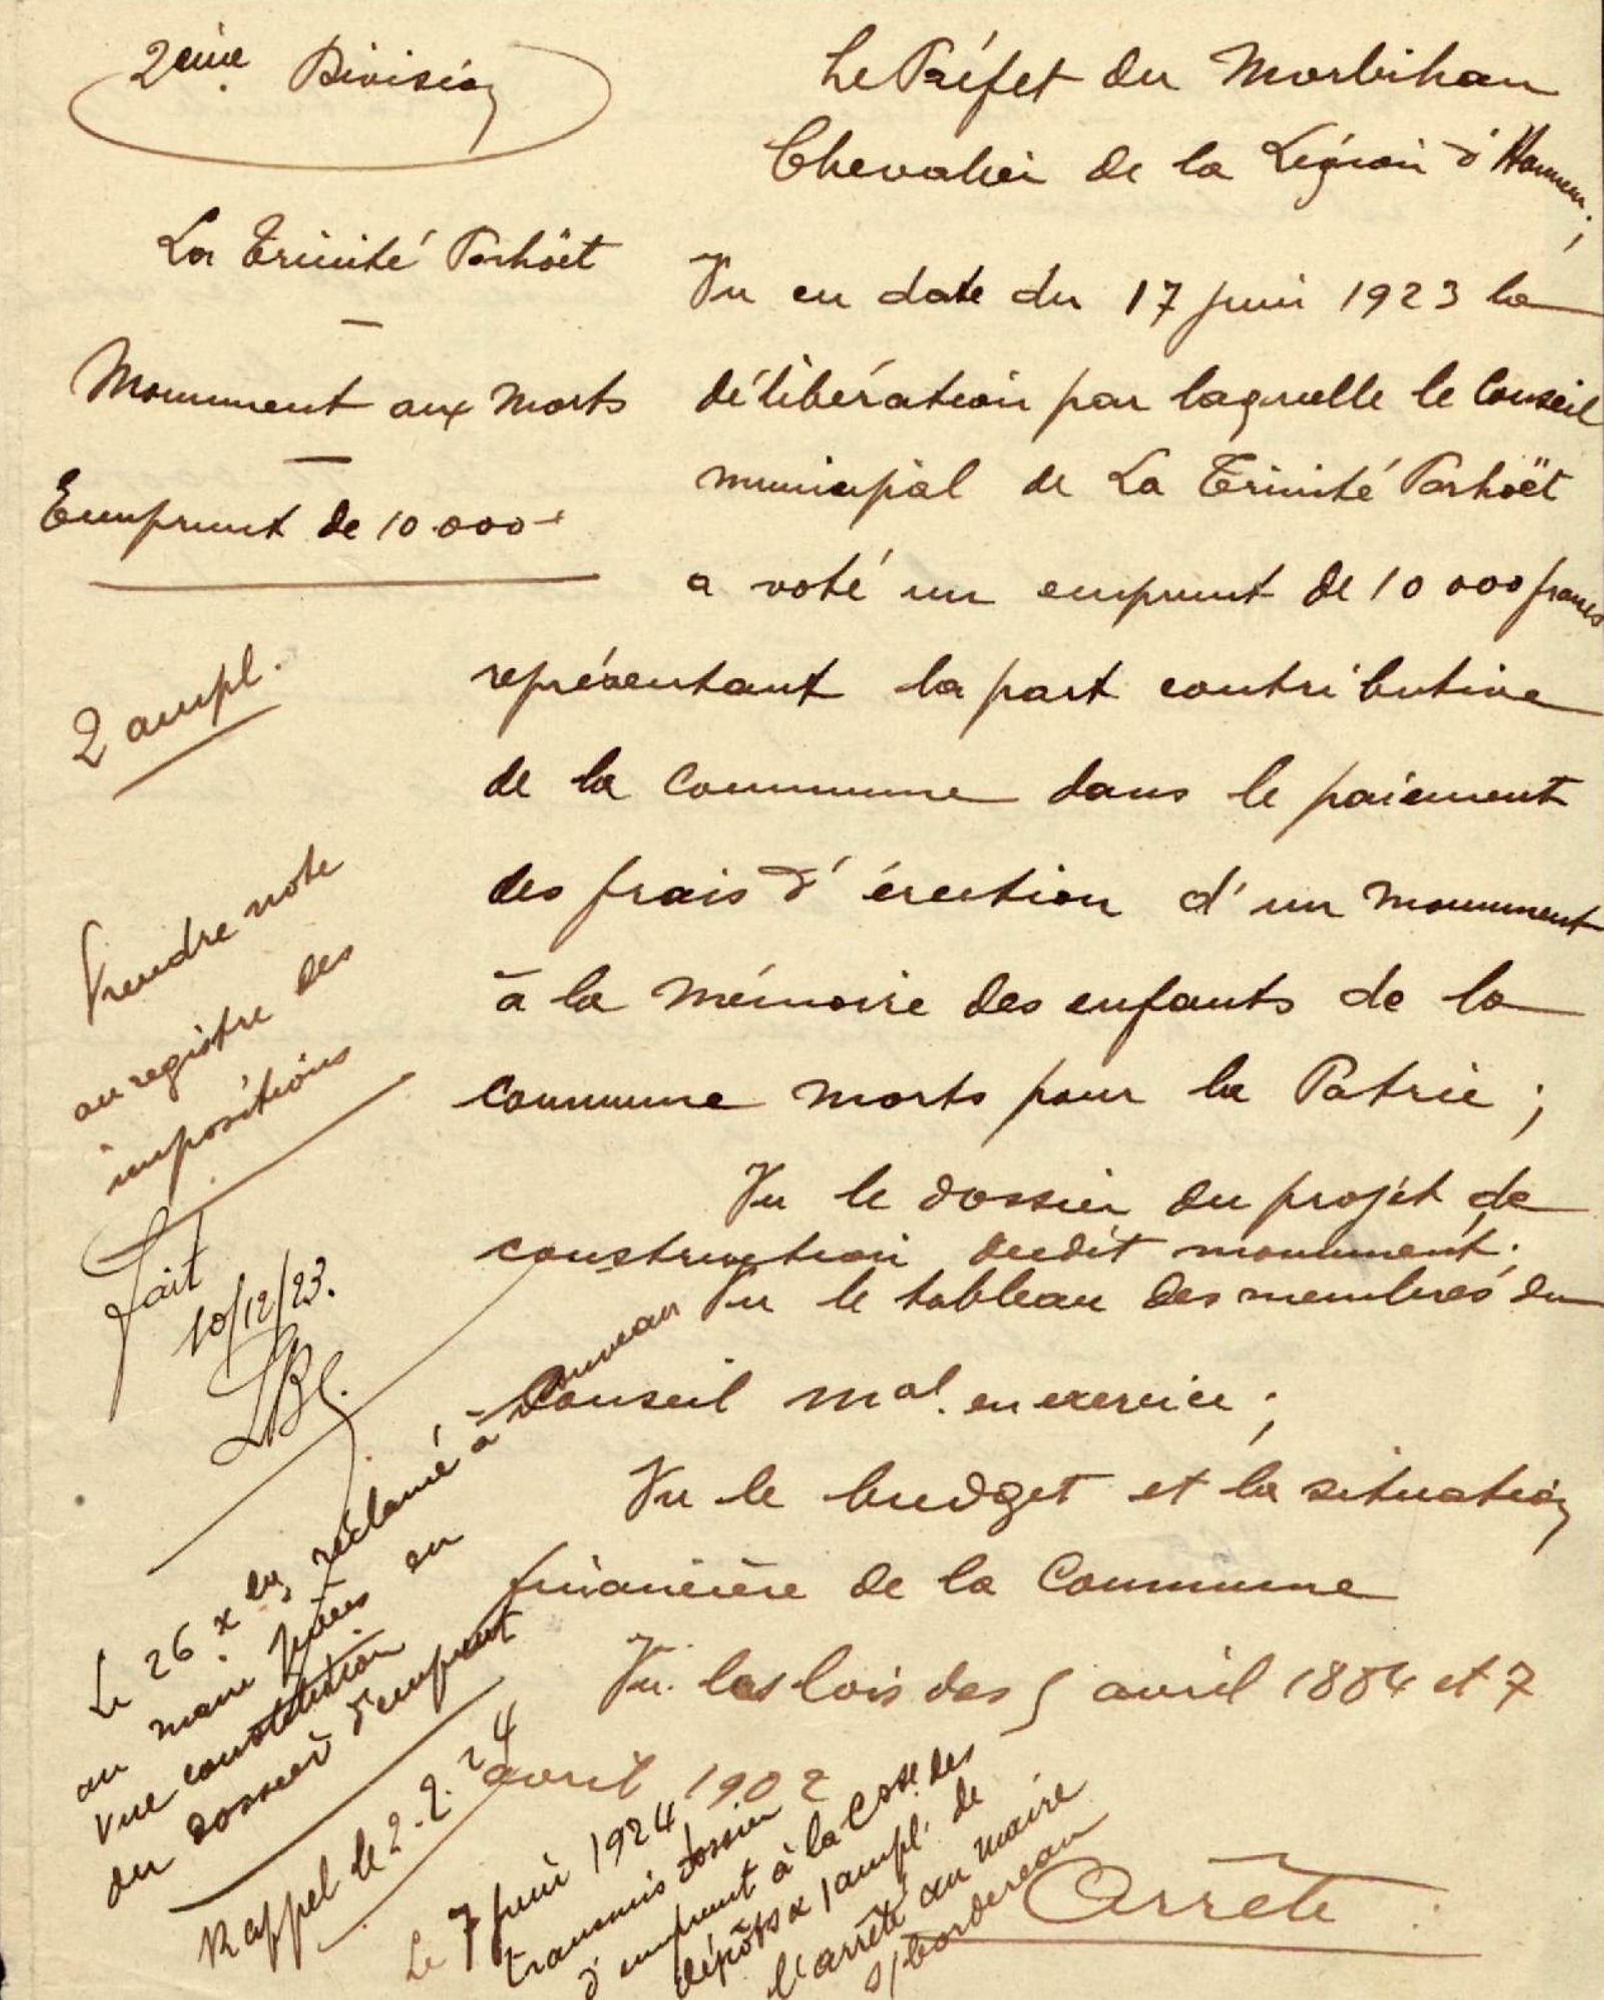 2ème Division
La Trinité Porhoët
Monument aux Morts
Emprunt de 10.000 f
2 ampl.
Prendre note
au registre des
impositions
fait
10/12/23.
Le 26 Xbre, réclamé à nouveau
au maire pièces en
vue constitution
du dossier d'emprunt
Rappel le 2-2-24
Le 7 juin 1924
transmis dossier
d'emprunt à la Csse des
dépôts & 1 ampl. de
l'arrêté au maire
s/bordereau
Le Préfet du Morbihan
Chevalier de la Légion d'Honneur;
Vu en date du 17 juin 1923 la
délibération par laquelle le Conseil
municipal de La Trinité Porhoët
a voté un emprunt de 10 000 francs
représentant la part contributive
de la Commune dans le paiement
des frais d'érection d'un monument
à la mémoire des enfants de la
Commune morts pour la Patrie ;
Vu le dossier du projet de
construction dudit monument;
Vu le tableau des membres du
Conseil mal. en exercice ;
Vu le budget et la situation
financière de la Commune
Vu les lois des 5 avril 1884 et 7
avril 1902
Arrête :